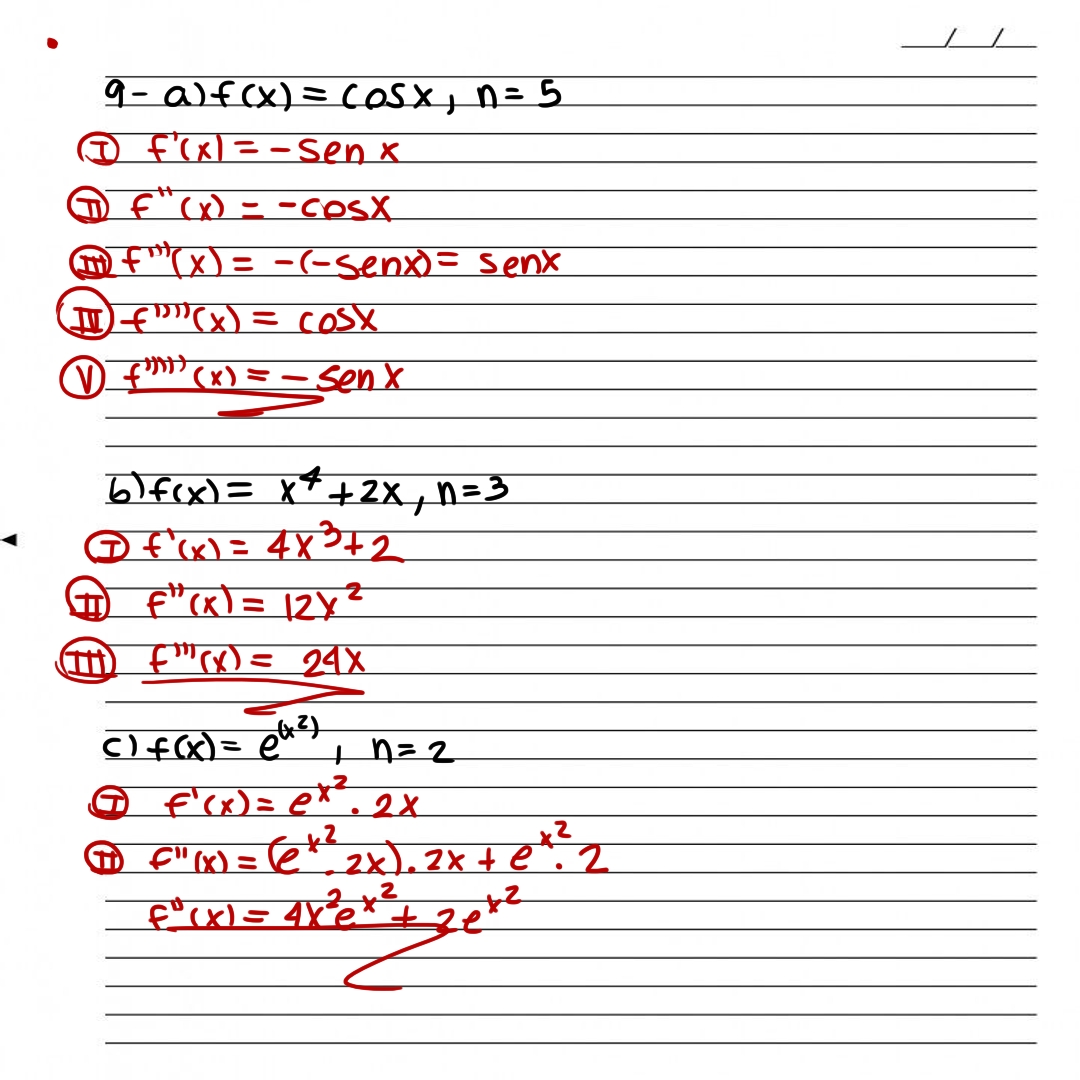 __/__/__
9- a) f(x) = cosx, n= 5
I f'(x) = -sen x
II f''(x) = -cosx
III f'''(x) = -(-senx) = senx
IV f''''(x) = cosx
V f'''''(x) = -sen x
b) f(x) = x⁴+2x, n=3
I f'(x) = 4x³+2
II f''(x) = 12x²
III f'''(x) = 24x
c) f(x) = e^(x²), n=2
I f'(x) = e^x² . 2x
II f''(x) = (e^x² . 2x) . 2x + e^x² . 2
f''(x) = 4x²e^x² + 2e^x²